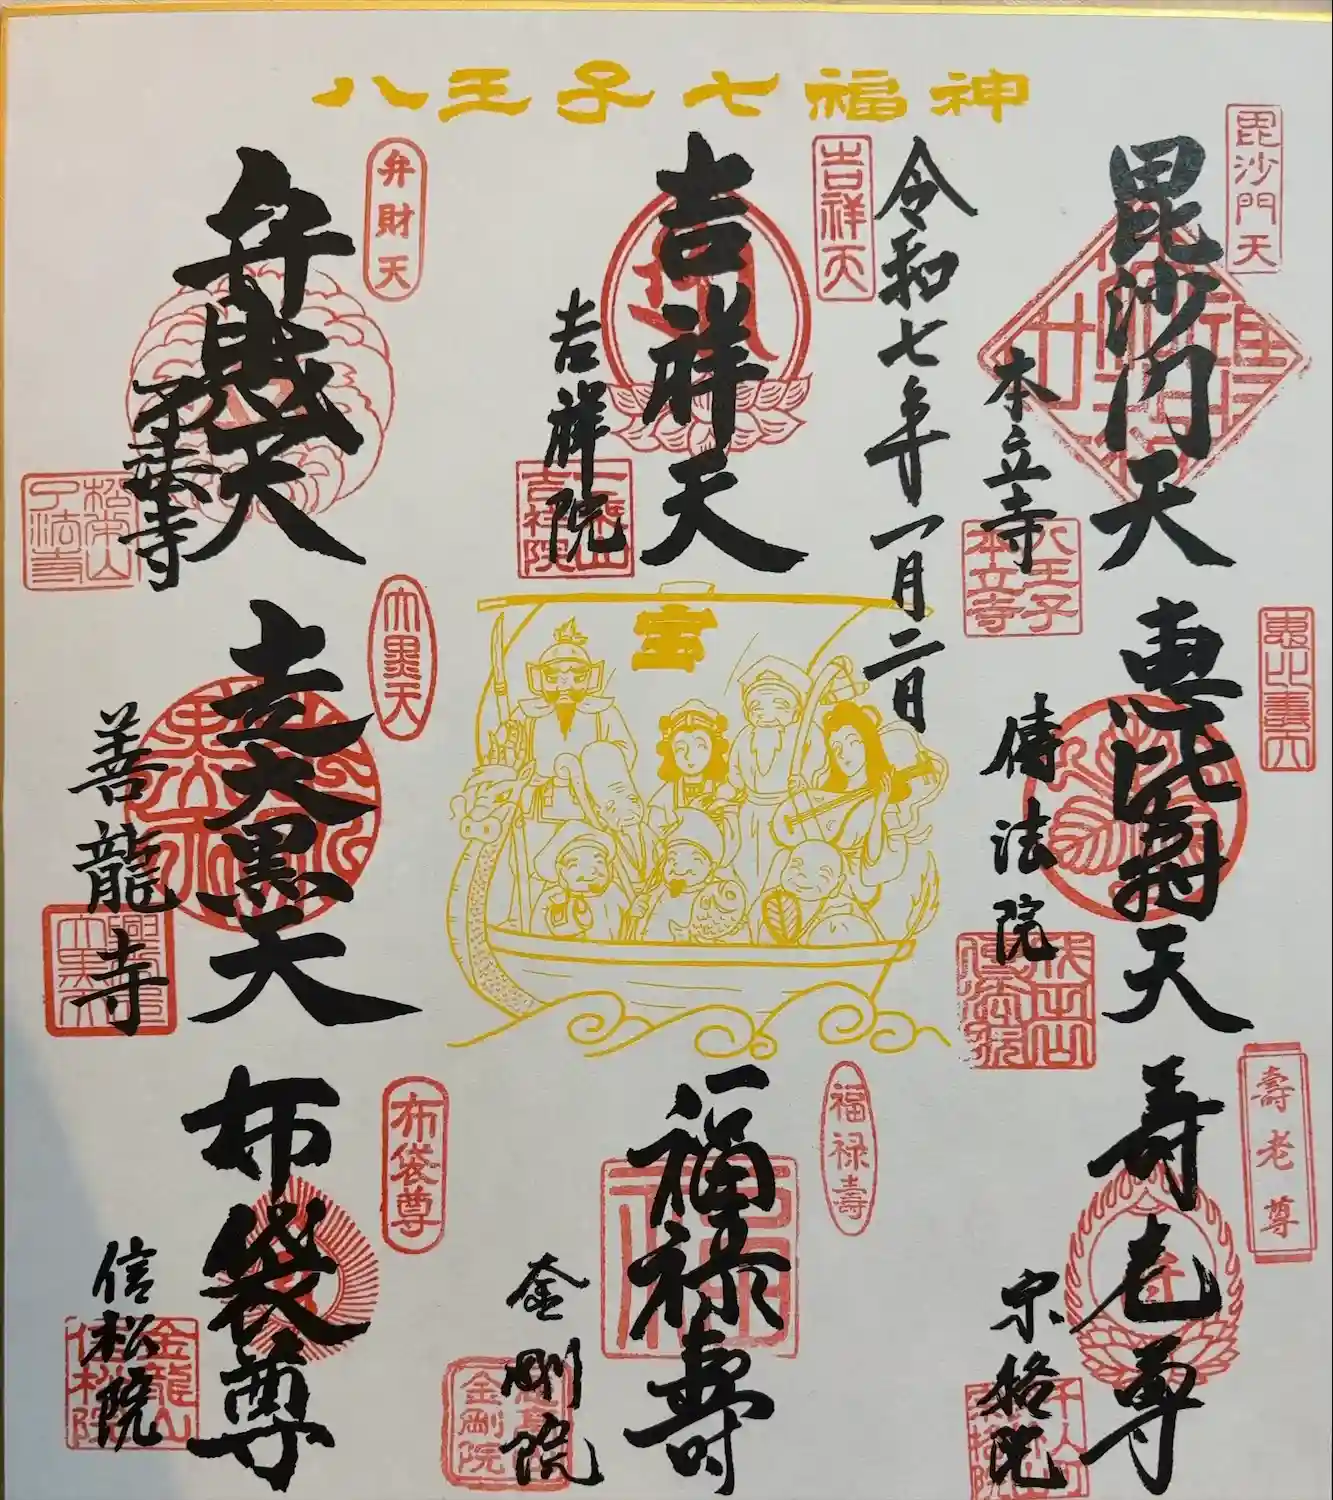 八王子七福神
毘沙門天
毘沙門天
本立寺
八王子
本立寺
令和七年一月二日
吉祥天
吉祥天
吉祥院
弁財天
弁財天
了法寺
松栄山
了法寺
恵比寿天
傳法院
宝
大黒天
走大黒天
善龍寺
壽老尊
寿老尊
宗格院
福禄壽
福禄壽
金剛院
金剛院
布袋尊
布袋尊
信松院
金龍山
信松院